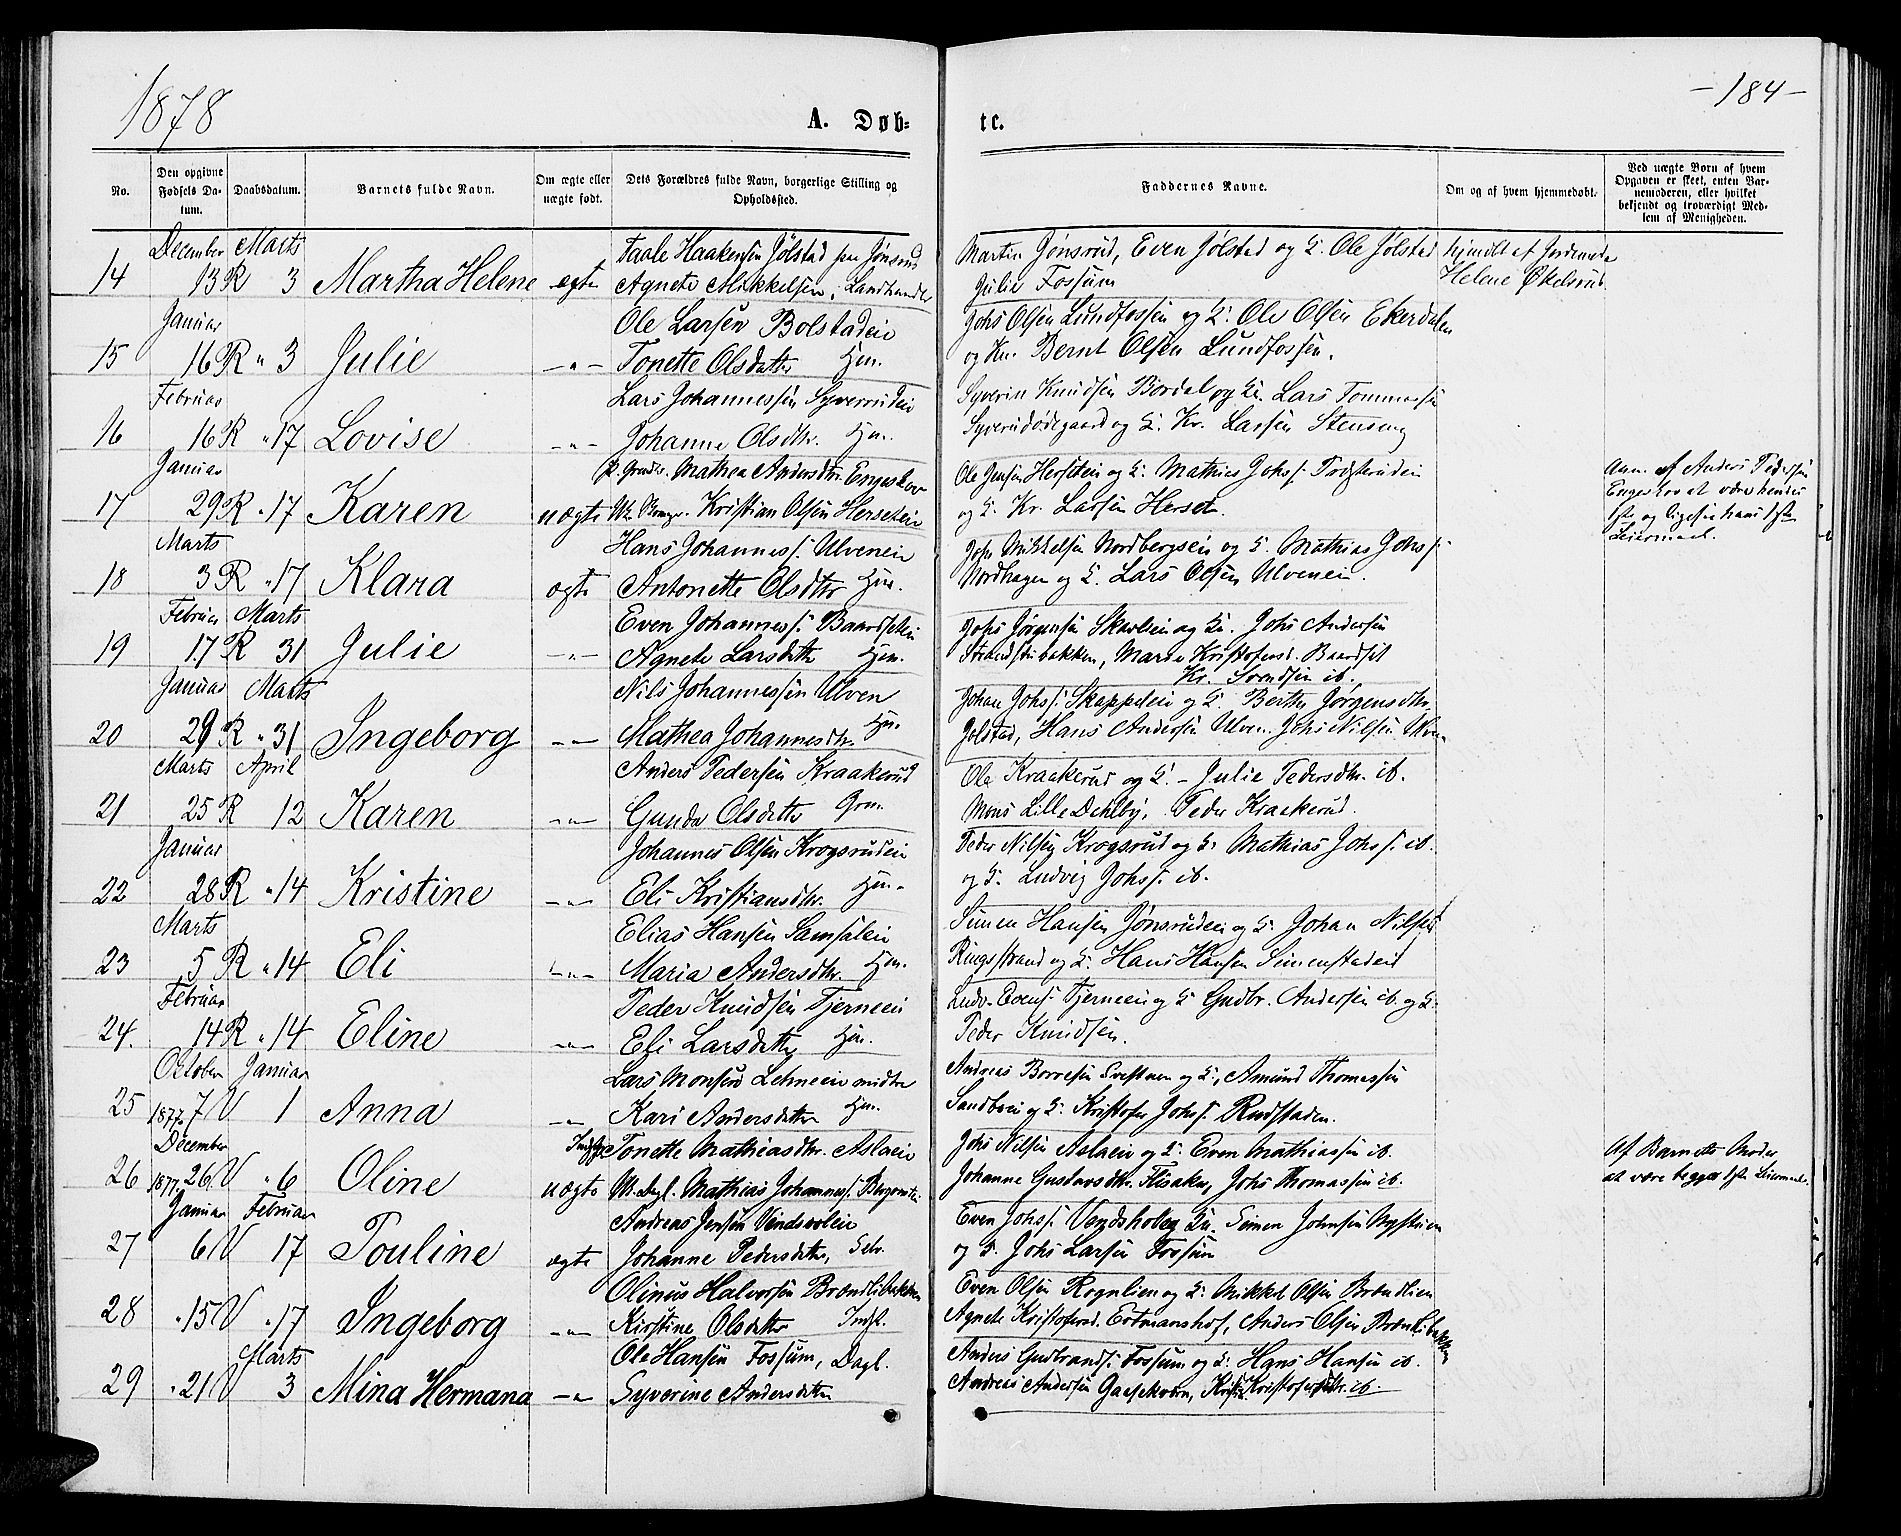 1878
A. Døb-
te.
-184-
No.
Den opgivne Fødsels Da-tum.
Daabsdatum.
Barnets fulde Navn.
Om ægte eller uægte født.
Dets Forældres fulde Navn, borgerlige Stilling og Opholdssted.
Faddernes Navne.
Om og af hvem hjemmedøbt.
Ved uægte Børn af hvem Opgaven er skeet, enten Barnemoderen, eller hvilket bekjendt og troværdigt Medlem af Menigheden.
December Marts
14 13 R 3 Martha Helene ægte
Taale Haakensen Jølstad paa Jønsrud
Agnete Mikkelsen, Landhandler
Martin Jønsrud, Even Jølstad og E. Ole Jølstad
Julie Fossum
hjmdbt af Jordemoder
Helene Økelsrud
Januar
15 16 R " 3 Julie - " -
Ole Larsen Bolstadeie
Tonette Olsdatter Hjm.
Johs Olsen Lundfossen og E. Ole Olsen Ekerdalen
og Bernt Olsen Lundfossen.
Februar
16 16 R " 17 Lovise - " -
Lars Johannessen Syverudeie
Johanne Olsdtr. Hjm.
Syverin Knudsen Bordal og Lars Tommassen
Syverudødegaard og E. Kr. Larsen Stenseng
Januar
17 29 R " 17 Karen uægte
Mathea Andersdtr. Engeskov
Kristian Olsen Herseteie
Ole Jensen Herseteie og E. Mathias Johs. Trosterudeie
og E. Kr. Larsen Herset.
Ann. af Anders Pedersen
Engeskov at være hendes
1ste og ligesaa hans 1ste
Leiermaal.
Marts
18 3 R " 17 Klara ægte
Hans Johanness. Ulveneie
Antonette Olsdtr. Hjm.
Johs Mikkelsen Nordbergseie og E. Mathias Johs.
Nordhagen og E. Lars Olsen Ulveneie.
Februar Marts
19 17 R 31 Julie - " -
Even Johanness. Baardseteie
Agnete Larsdatter Hjm.
Johs Jørgensen Skarleie og Johs Andersen
Maria Kristofersd. Baardset
Kr. Svendsen ib.
Januar Marts
20 29 R " 31 Ingeborg - " -
Nils Johannessen Ulven
Mathea Johannesdtr. Hjm.
Johan Johs. Skappeleie og E. Berthe Jørgensdtr.
Jølstad, Hans Andersen Ulven. Johs Nilsen Ulven
Marts April
21 25 R 12 Karen - " -
Anders Pedersen Kraakerud
Gunda Olsdatter Grm.
Ole Kraakerud og E. - Julie Pedersdtr. ib.
Mons Lille Dehlby, Peder Kraakerud.
Januar
22 28 R " 14 Kristine - " -
Johannes Olsen Krogsrudeie
Eli Kristiansdtr. Hjm.
Peder Nilsen Krogsrud og E. Mathias Johs. ib.
og E. Ludvig Johs. ib.
Marts
23 5 R " 14 Eli - " -
Elias Hansen Samsaleie
Maria Andersdtr. Hjm.
Simen Hansen Jønsrudeie og E. Johan Nilsen
Ringsstrand og E. Hans Hansen Simenstadeie
Februar
24. 14 R " 14 Eline - " -
Peder Knudsen Tjerneeie
Eli Larsdatter Hjm.
Ludv. Evens. Tjerneeie og E. Gudbr. Andersen ib. og E.
Peder Knudsen.
October Januar
25 1877. 7 V 1 Anna - " -
Lars Monsen Lehneeie midtre
Kari Andersdatter Hjm.
Andreas Borresen og E., Amund Thomassen
Sandbeie og E. Kristofer Johs. Rudstaden.
December
26 1877. 26 V " 6 Oline uægte
Tonette Mathiasdtr. Aslaeie
Mathias Johanness.
Johs Nilsen Aslaeie og E. Even Mathiassen ib.
Johanne Gustavsdtr. Flisaker, Johs Thomassen ib.
Af Barnets Moder
at være begges 1ste Leiermaal.
Januar Februar
27 6 V 17 Pouline ægte
Andreas Jensen Vendkveleie
Johanne Pedersdatter, Selv.
Even Johs. og Simen Johnsen Nystuen
og E. Johs Larsen Fossum
28 " 15 V " 17 Ingeborg - " -
Olinus Halvorsen Brændlibakken
Kirstine Olsdatter Indst.
Even Olsen Rognlien og E. Mikkel Olsen Brændlien
Agnete Kristofersd. Evtmanshof, Anders Olsen Brændlibakken
Marts
29 " 21 V 3 Mina Hermana - " -
Ole Hansen Fossum, Dagl.
Syverine Andersdatter
Anders Gudbrands. Fossum og E. Hans Hansen ib.
Andreas Andersen Gaasekvern, Kristofersdtr. ib.